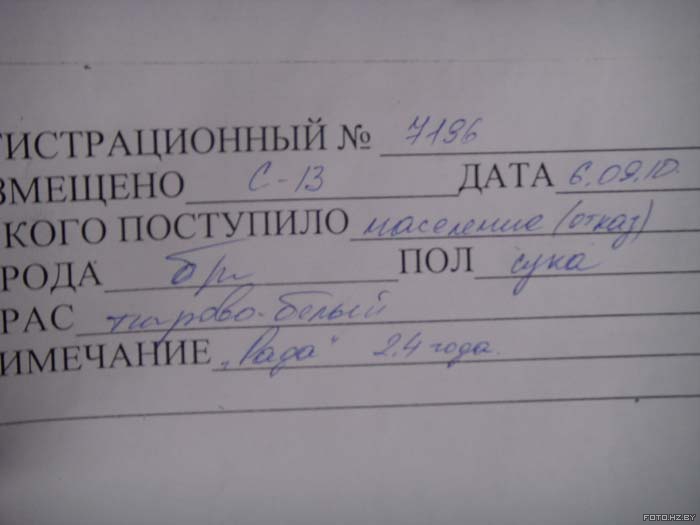 ГИСТРАЦИОННЫЙ № 7196
ЗМЕЩЕНО С-13 ДАТА 6.09.10.
КОГО ПОСТУПИЛО население (отказ)
РОДА бп ПОЛ сука
РАС тигрово-белый
ИМЕЧАНИЕ "Рада" 2,4 года.
FOTO.HZ.BY